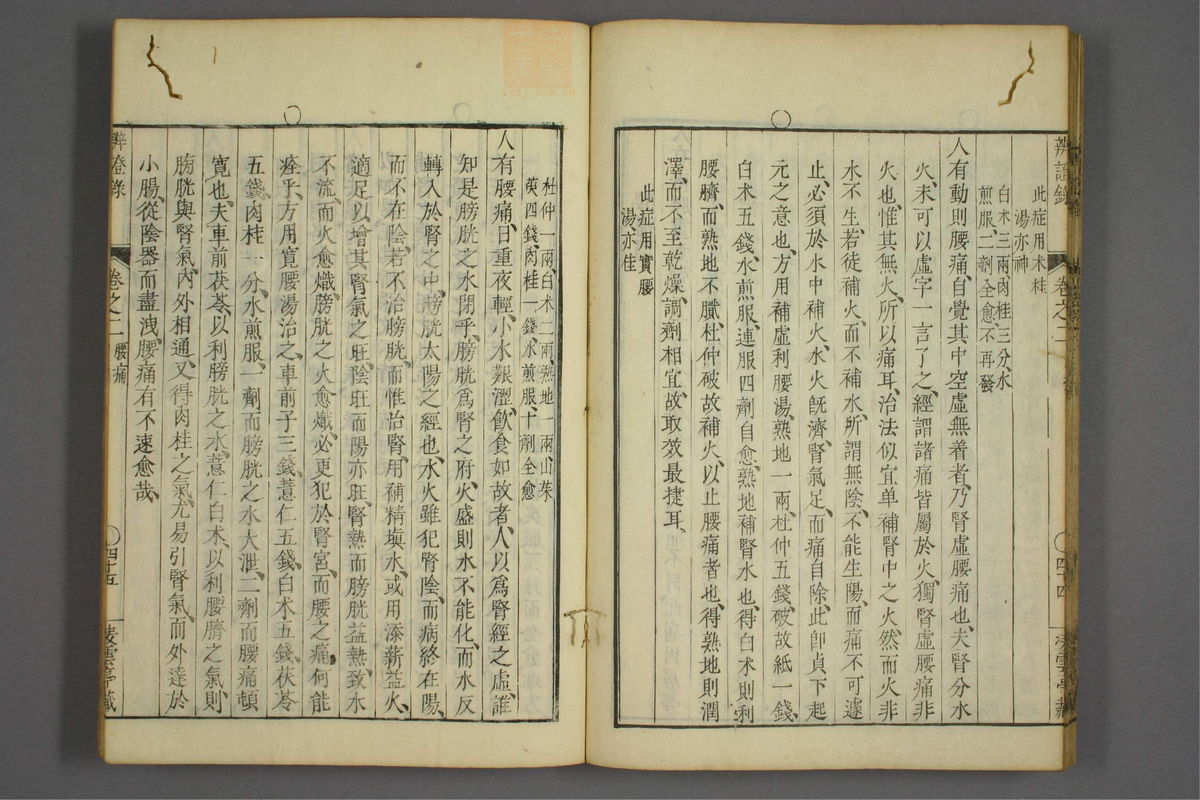 辨證錄 卷之二 四十四 凌雲亭藏
此症用术桂
湯亦神
白术三兩肉桂三分、水
煎服、二劑全愈、不再發
人有動則腰痛、自覺其中空虛無着者、乃腎虛腰痛也、夫腎分水
火、未可以虛字一言了之、經謂諸痛皆屬於火、獨腎虛腰痛非
火也、惟其無火、所以痛耳、治法似宜单補腎中之火、然而火非
水不生、若徒補火、而不補水、所謂無陰、不能生陽、而痛不可遽
止、必須於水中補火、水火旣濟、腎氣足、而痛自除、此卽貞下起
元之意也、方用補虛利腰湯、熟地一兩、杜仲五錢、破故紙一錢、
白术五錢、水煎服、連服四劑自愈、熟地補腎水也、得白术則利
腰臍、而熟地不膩、杜仲破故補火、以止腰痛者也、得熟地則潤
澤、而不至乾燥、調劑相宜、故取效最捷耳、
此症用實腰
湯、亦佳
杜仲一兩白术二兩、熟地一兩、山茱
萸四錢、肉桂一錢、水煎服、十劑全愈
人有腰痛、日重夜輕、小水艱澀、飮食如故者、人以爲腎經之虛、誰
知是膀胱之水閉乎、膀胱爲腎之府、火盛則水不能化、而水反
轉入於腎之中、膀胱太陽之經也、水火雖犯腎陰、而病終在陽、
而不在陰、若不治膀胱、而惟治腎、用補精塡水、或用添薪益火、
適足以增其腎氣之旺、陰旺而陽亦旺、腎熱而膀胱益熱、致水
不流、而火愈熾、膀胱之火愈熾、必更犯於腎宮、而腰之痛何能
痊乎、方用寬腰湯治之、車前子三錢、薏仁五錢、白术五錢、茯苓
五錢、肉桂一分、水煎服、一劑而膀胱之水大泄、二劑而腰痛頓
寬也、夫車前茯苓、以利膀胱之水、薏仁白术、以利腰臍之氣、則
膀胱與腎氣、內外相通、又得肉桂之氣、尤易引腎氣、而外達於
小腸、從陰器而盡洩、腰痛有不速愈哉、
辨證錄 卷之二 腰痛 四十五 凌雲亭藏